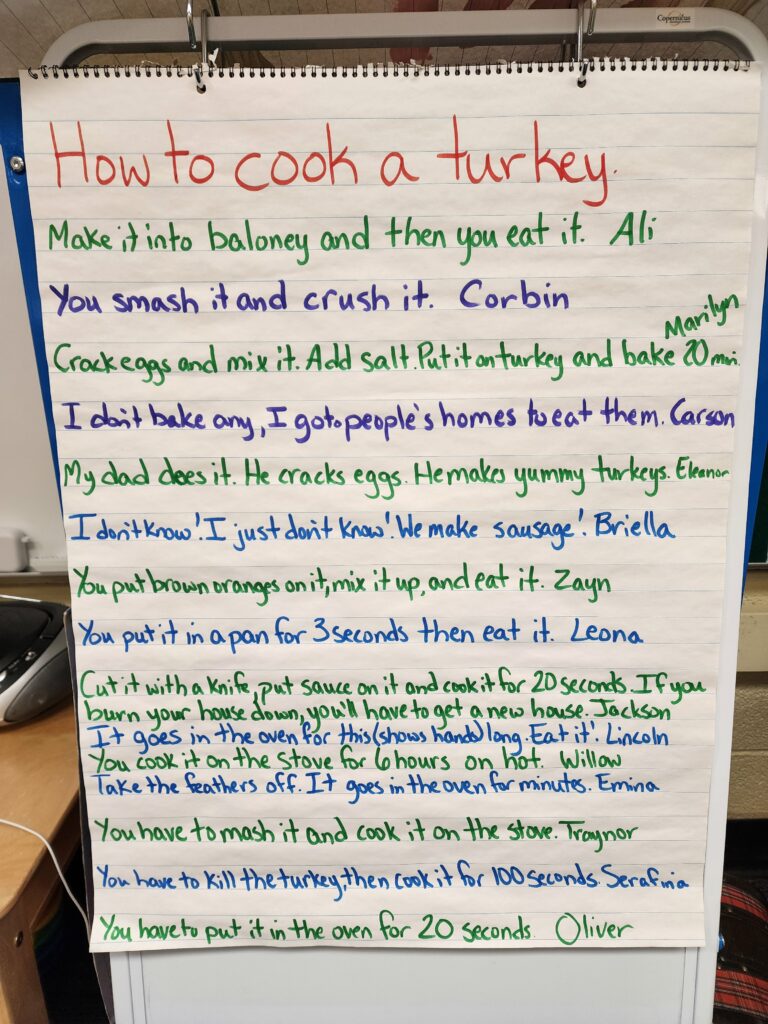 Copernicus
How to cook a turkey.
Make it into baloney and then you eat it. Ali
You smash it and crush it. Corbin
Marilyn
Crack eggs and mix it. Add salt. Put it on turkey and bake 20 min.
I don't bake any, I go to people's homes to eat them. Carson
My dad does it. He cracks eggs. He makes yummy turkeys. Eleanor
I don't know! I just don't know! We make sausage! Briella
You put brown oranges on it, mix it up, and eat it. Zayn
You put it in a pan for 3 seconds then eat it. Leona
Cut it with a knife, put sauce on it and cook it for 20 seconds. If you
burn your house down, you'll have to get a new house. Jackson
It goes in the oven for this (shows hands) long. Eat it! Lincoln
You cook it on the stove for 6 hours on hot. Willow
Take the feathers off. It goes in the oven for minutes. Emina
You have to mash it and cook it on the stove. Traynor
You have to kill the turkey, then cook it for 100 seconds. Serafina
You have to put it in the oven for 20 seconds Oliver